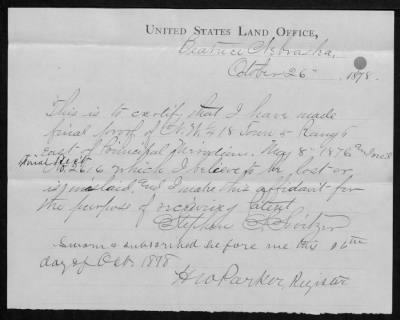 UNITED STATES LAND OFFICE,
Beatrice Nebraska,
October 26th 1878.
This is to certify that I have made
final proof of N.W. 4 18 Town 5 Range 5
East of Principal Meridian. May 8th 1876
Final Rect No. 2616 which I believe to be lost or
and I make this affidavit for
the purpose of receiving Patent.
Stephen Switzer
Sworn & subscribed before me this 26th
day of Octr 1878
H W Parker, Register